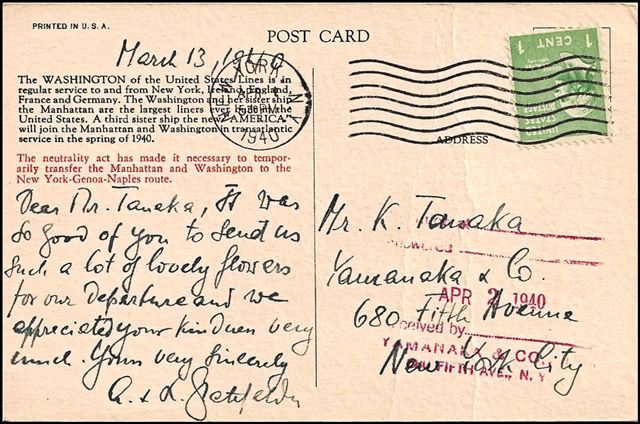 PRINTED IN U.S.A.
POST CARD
March 13 1940
The WASHINGTON of the United States Lines is in
regular service to and from New York, Ireland, England,
France and Germany. The Washington and her sister ship
the Manhattan are the largest liners ever built in the
United States. A third sister ship the new "AMERICA"
will join the Manhattan and Washington in transatlantic
service in the spring of 1940.
The neutrality act has made it necessary to tempor-
arily transfer the Manhattan and Washington to the
New York-Genoa-Naples route.
NEW YORK, N.Y.
APR 1
PM
1940
1 CENT 1
UNITED
STATES
POSTAGE
ADDRESS
Dear Mr. Tanaka, It was
so good of you to send us
such a lot of lovely flowers
for our departure and we
appreciated your kindness very
much. Yours very sincerely
A. & L.
Mr. K. Tanaka
Yamanaka & Co.
680 Fifth Avenue
New York City
Answered
APR 2 1940
Received by
YAMANAKA & CO.
680 FIFTH AVE., N. Y.